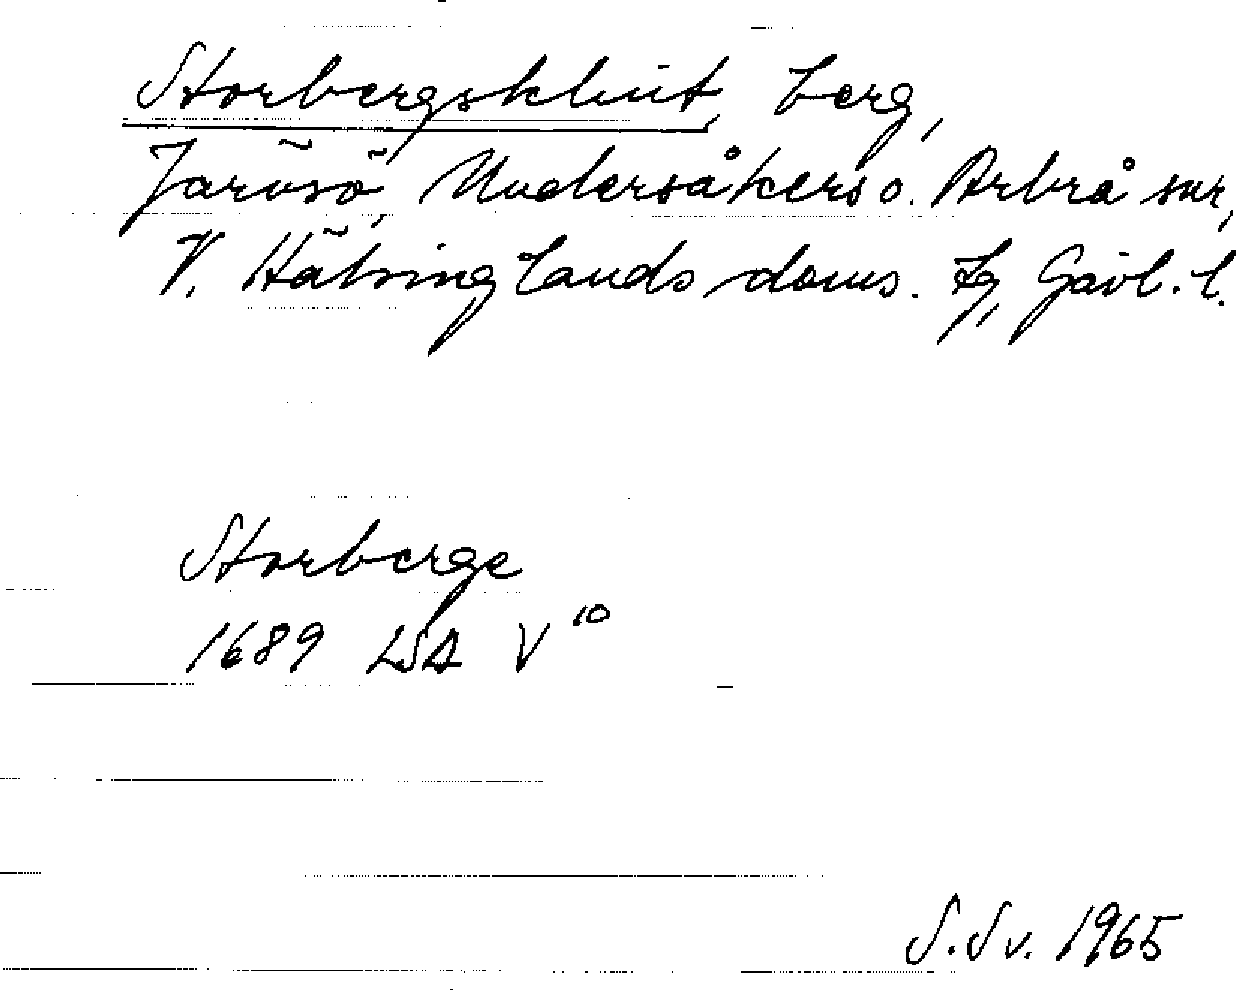 Storbergsklint, berg,
Järvsö, Undersåkers o. Arbrå snr,
V. Hälsinglands doms. tg, Gävl. l.
Storberge
1689 LSA V¹⁰
S. Sv. 1965